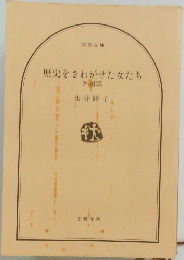 文春文庫
歴史をさわがせた女たち
外国篇
永井路子
文藝春秋